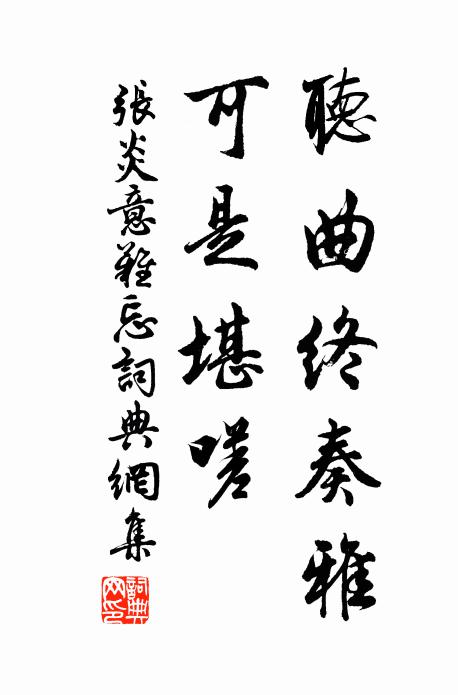 聽曲終奏雅
可是堪嗟
張炎意難忘詞典網集
詞典網印